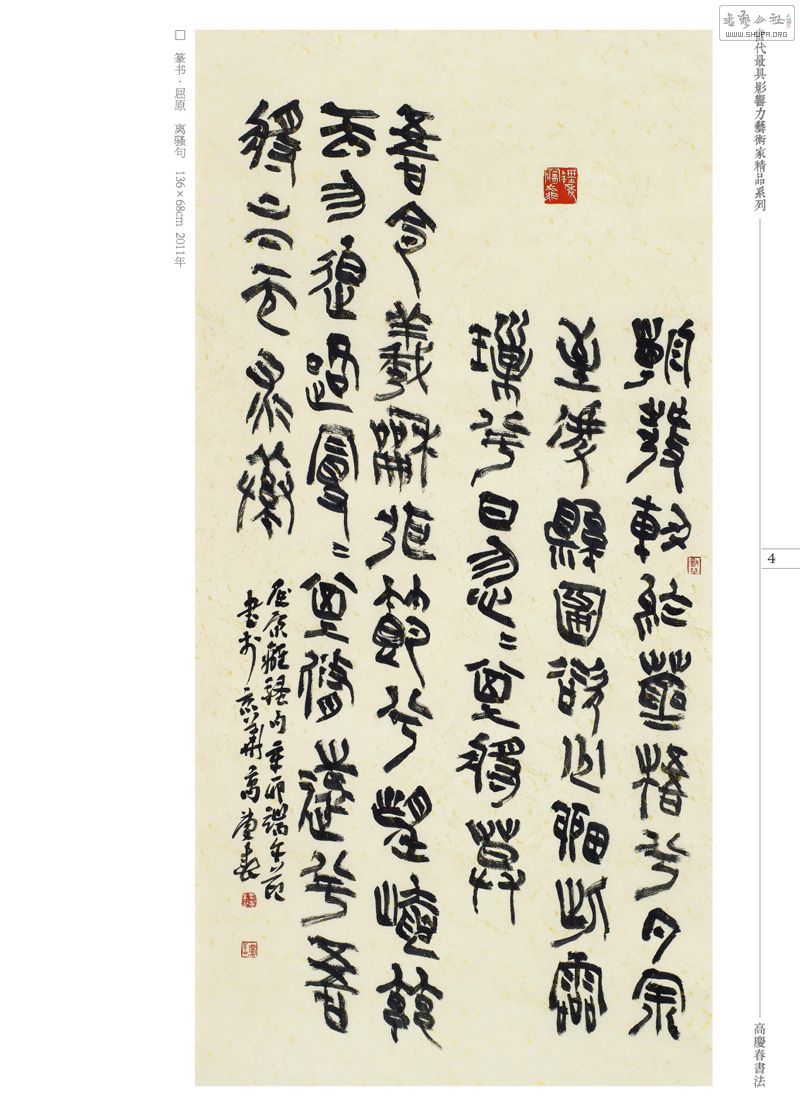 書藝公社
WWW.SHUFA.ORG
當代最具影響力藝術家精品系列
4
高慶春書法
朝發軔於蒼梧兮夕余
至乎縣圃欲少留此靈
瑣兮日忽〻其將暮
吾令羲和弭節兮望崦嵫
而勿迫路曼〻其脩遠兮吾
將上下而求索
屈原離騷句辛卯端午節
書於京華高慶春
□ 篆书·屈原 离骚句 136×68cm 2011年